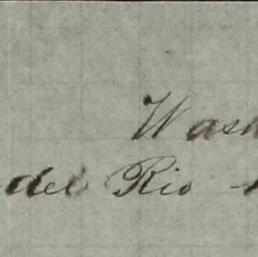 Wash
del Rio